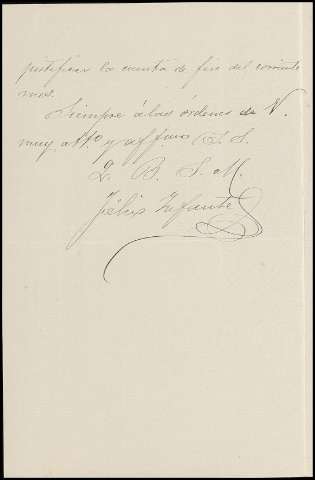 justificar la cuenta de fin del corriente
mes.
Siempre á las órdenes de V.
muy attº y affmo S. S.
Q. B. S. M.
Félix Infante